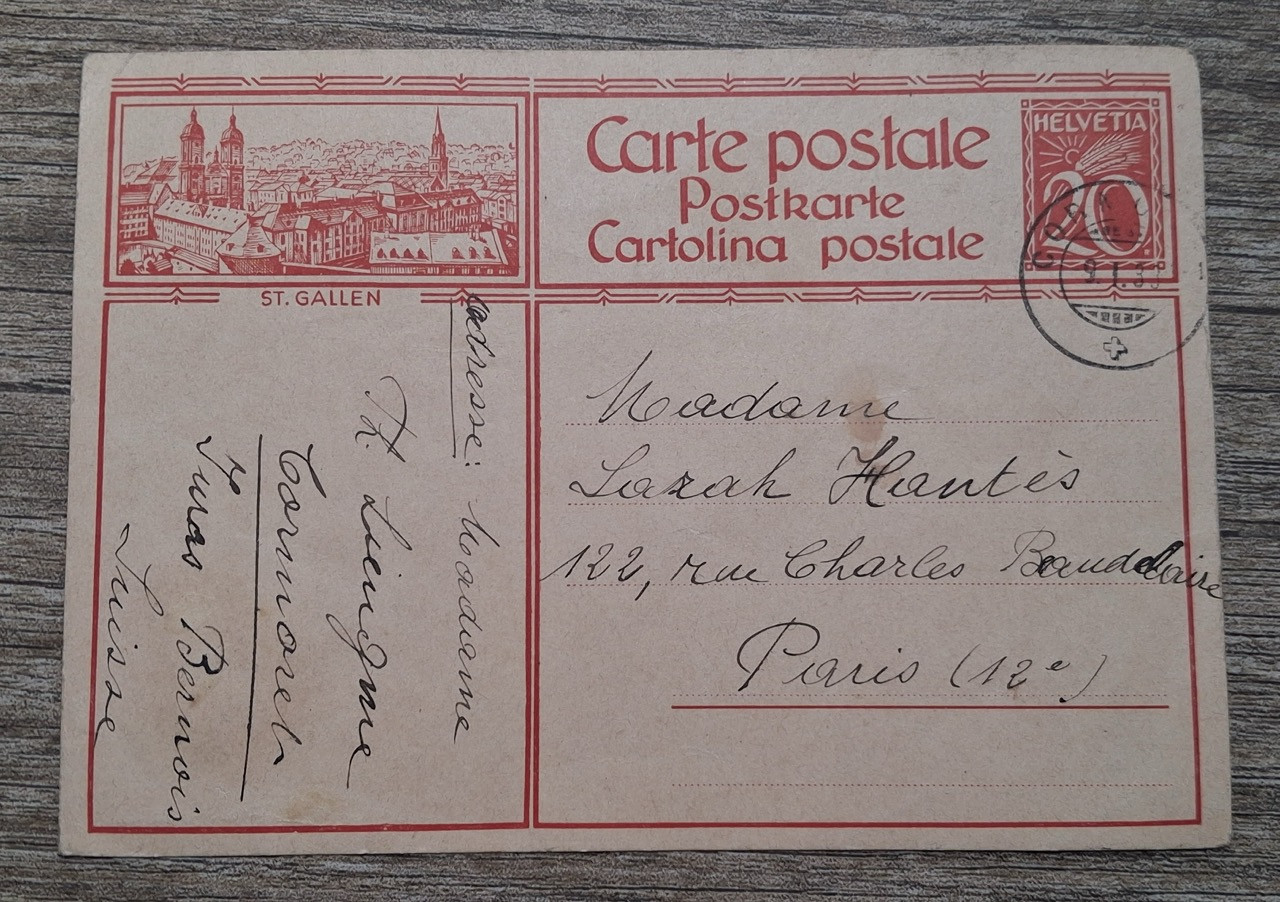 Carte postale
Postkarte
Cartolina postale
HELVETIA
20
ST. GALLEN
Madame
Sarah Hantès
122, rue Charles Baudelaire
Paris (12e)
adresse: Madame
Cormoret
Jura Bernois
Suisse